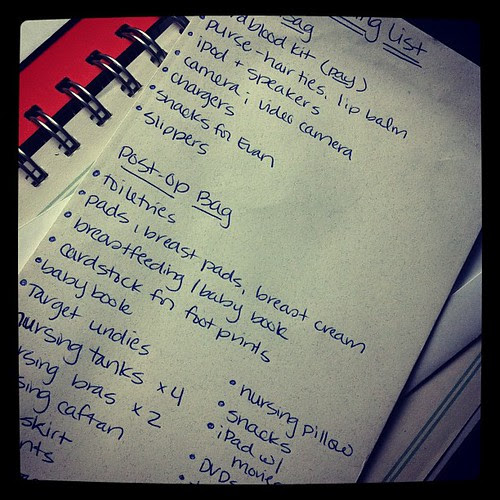 Bag
List
blood kit (pay)
• purse-hair ties, lip balm
• ipod + speakers
• camera ; video camera
• chargers
• snacks for Evan
• slippers
Post-op Bag
• toiletries
• pads, breast pads, breast cream
• breastfeeding / baby book
• cardstick for footprints
• baby book
• Target undies
nursing tanks x4
bras x2
caftan
skirt
• nursing pillow
• snacks
• iPad w/
movie
• DVDs